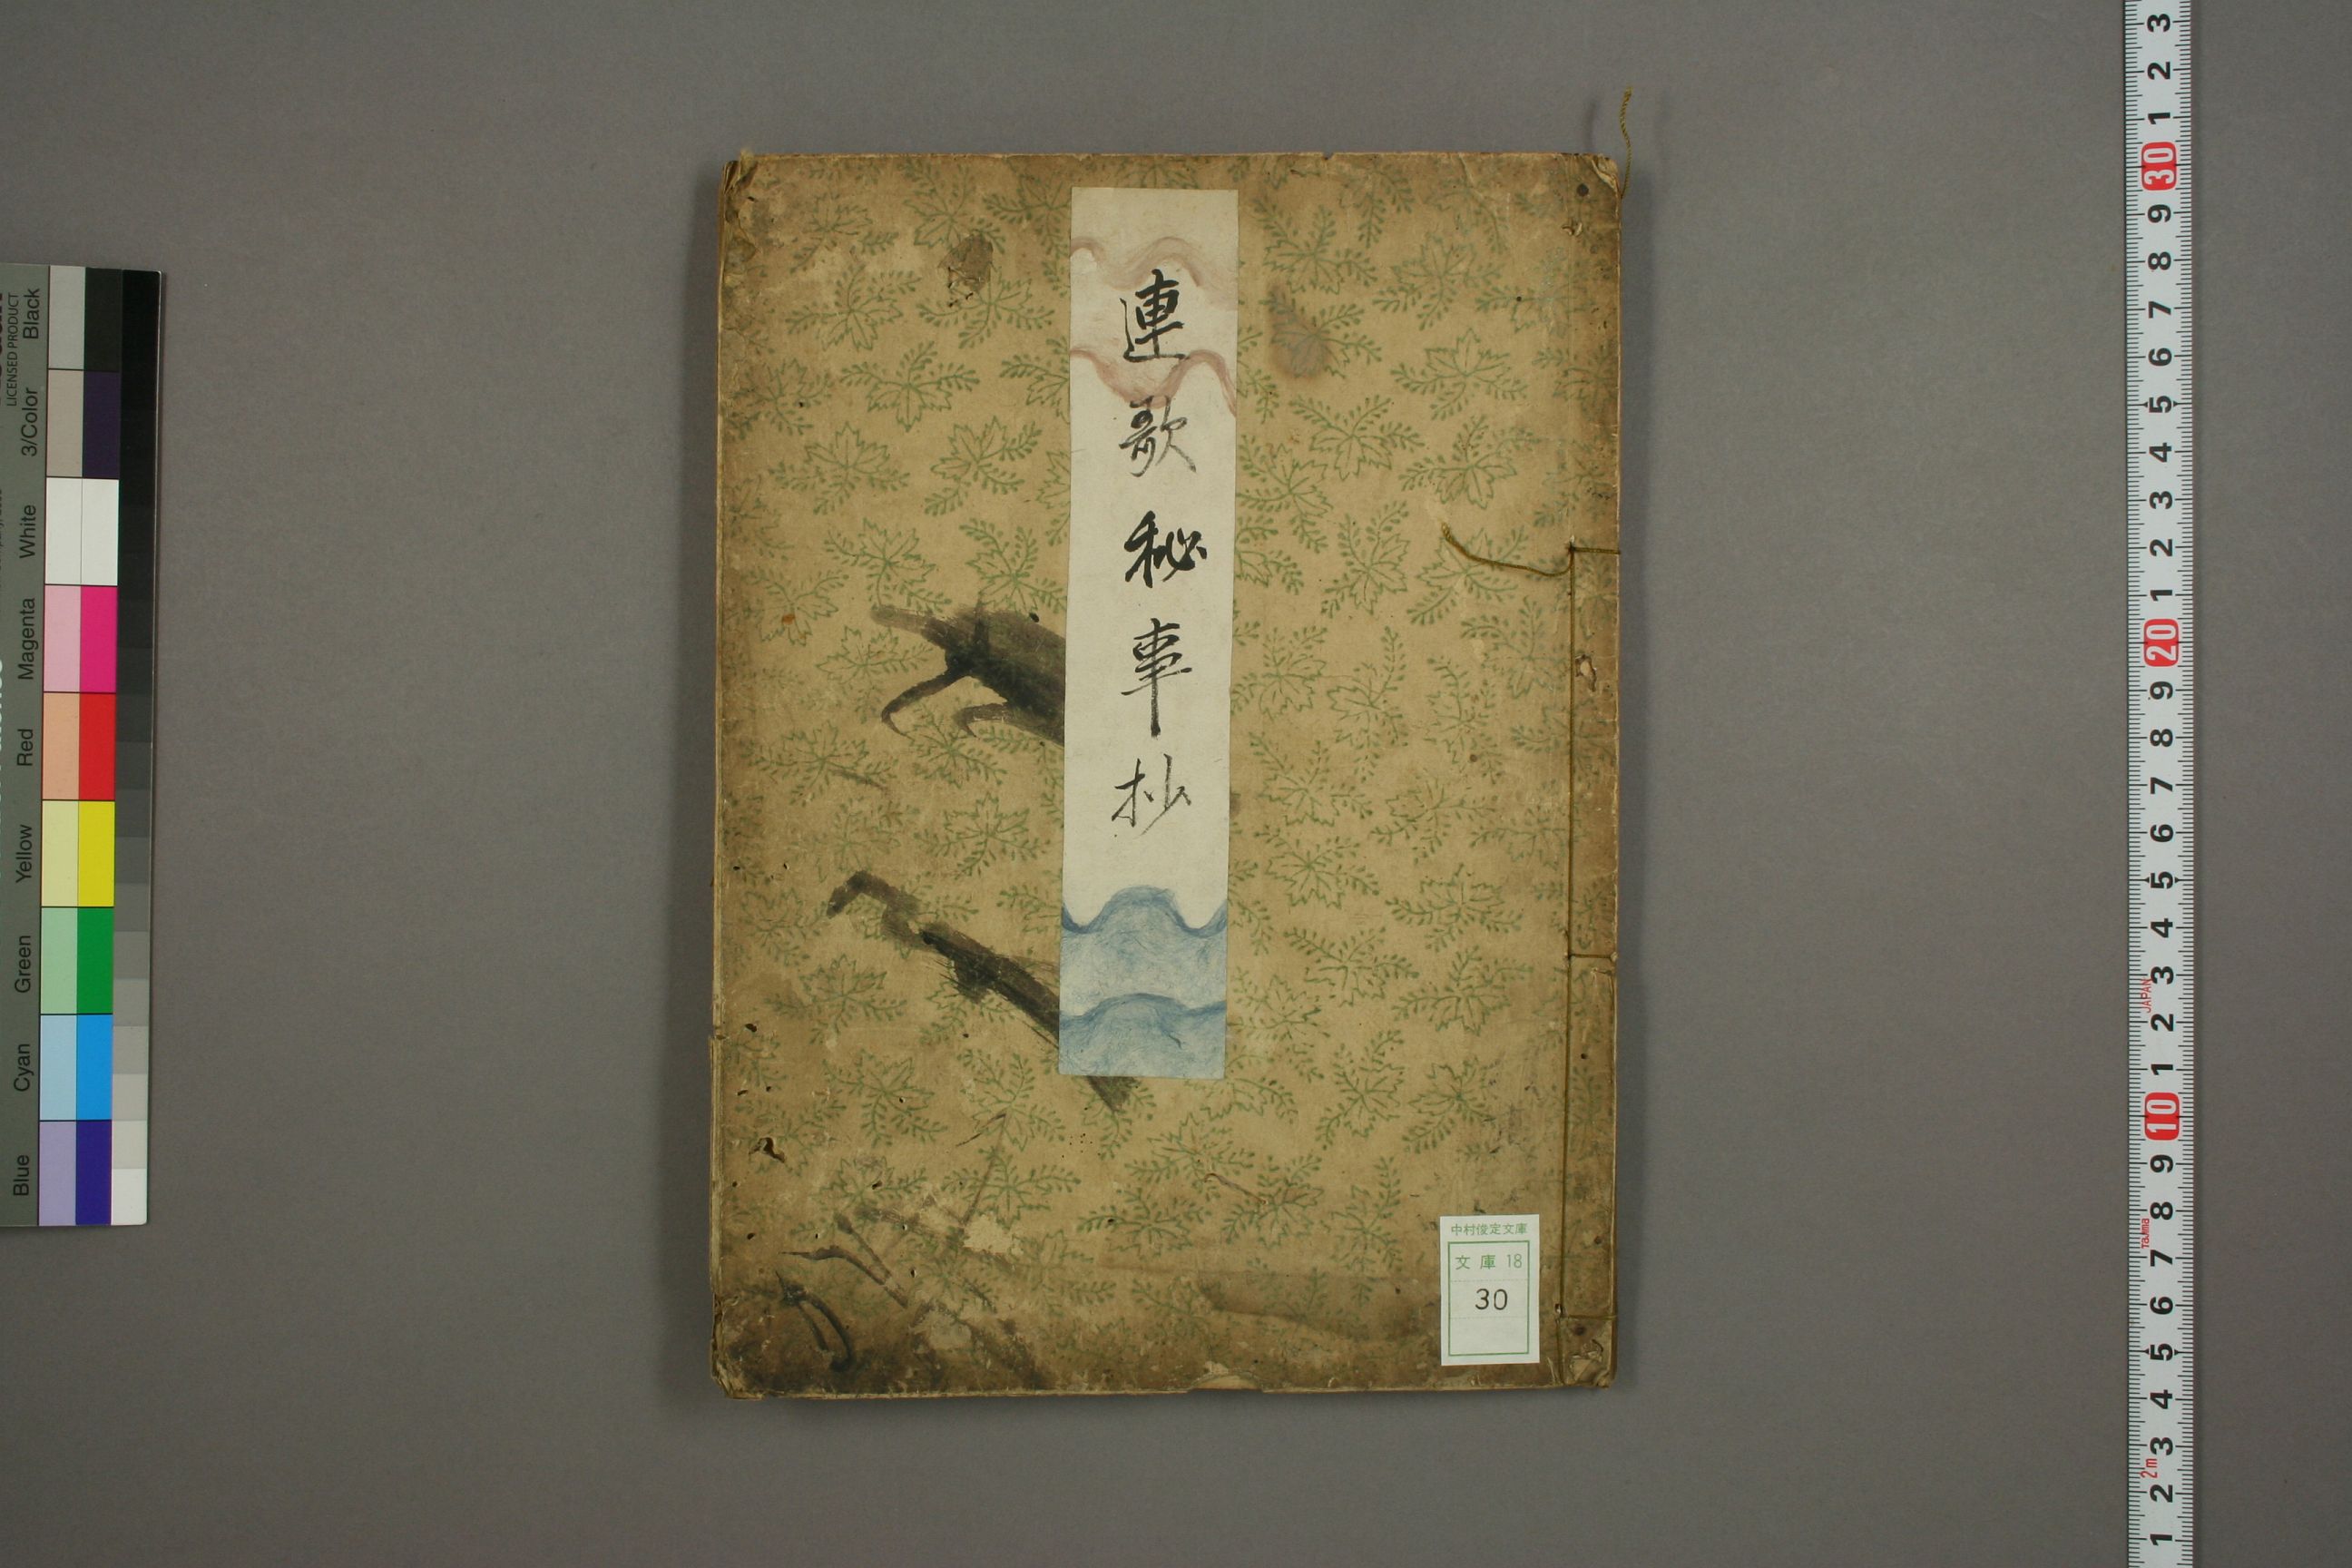 連歌秘事抄
中村俊定文庫
文庫 18
30
LICENSED PRODUCT
Black
3/Color
White
Magenta
Red
Yellow
Green
Cyan
Blue
3
2
1
30
9
8
7
6
5
4
3
2
1
20
9
8
7
6
5
4
3
JAPAN
2
1
10
9
8
Tajima
7
6
5
4
3
2m
2
1